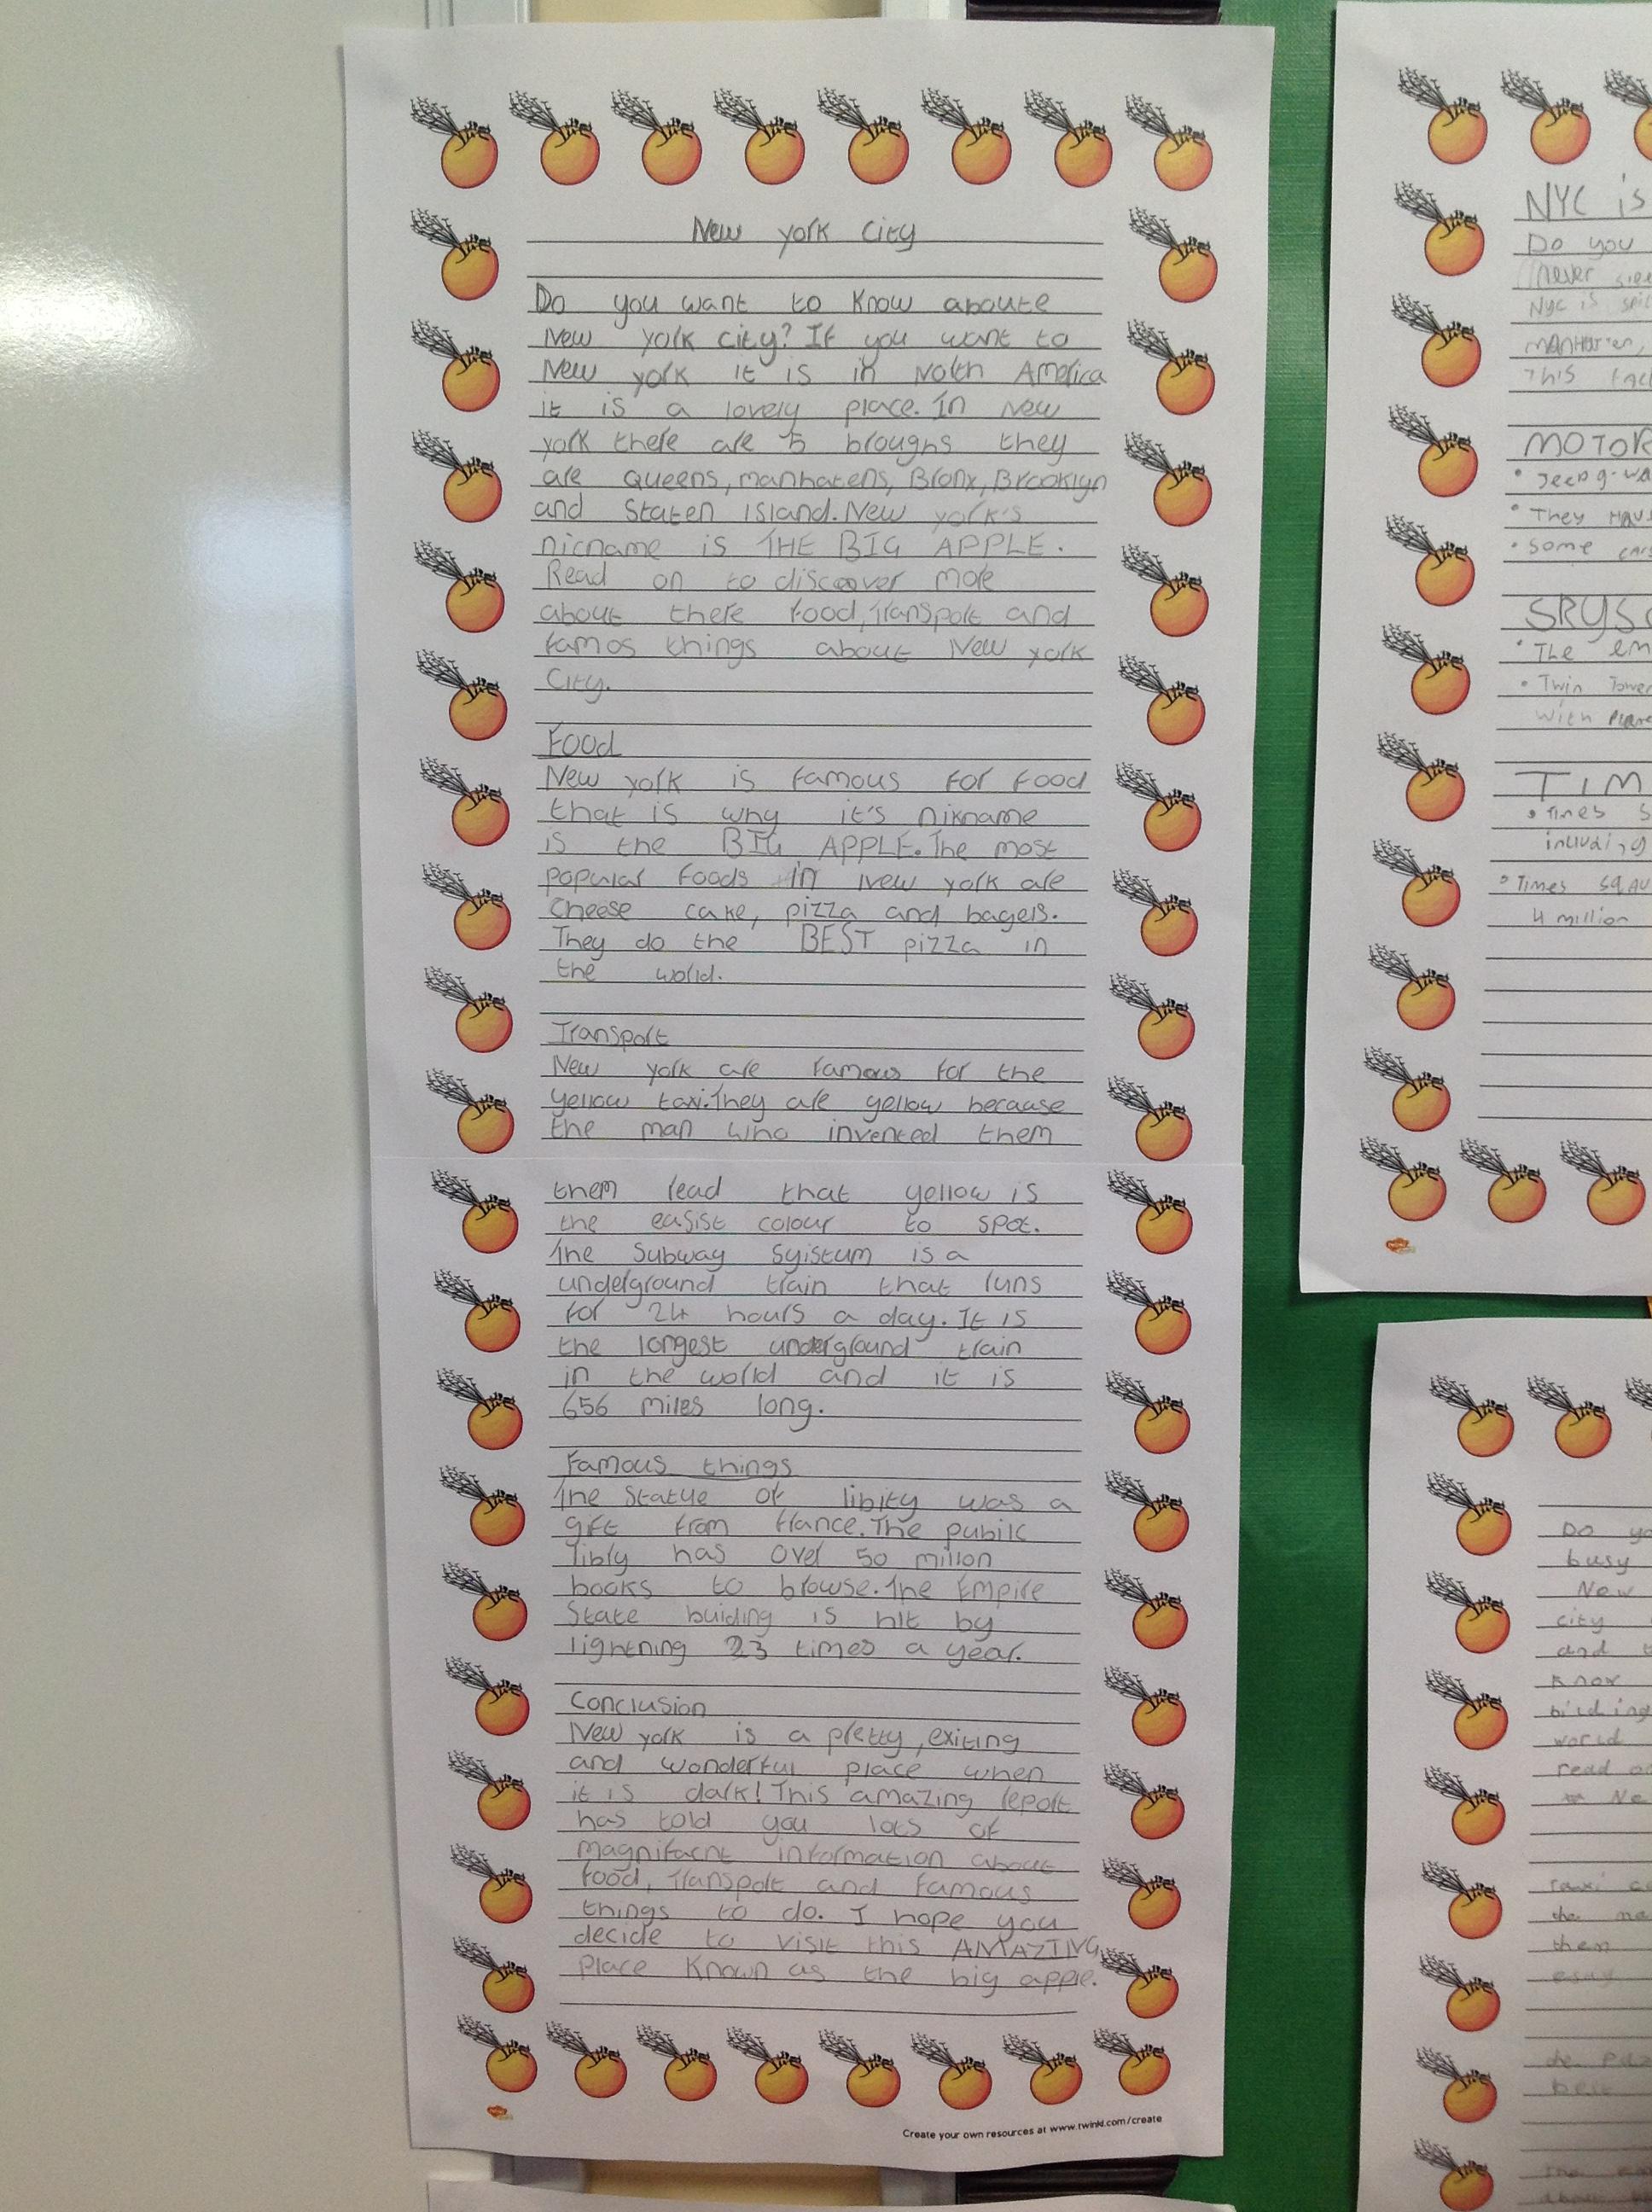 New york City
Do you want to know aboute
New york city? If you want to
New york it is in North America
it is a lovely place. In New
york there are 5 broughs they
are Queens, manhatens, Bronx, Brooklyn
and Staten Island. New york's
nicname is THE BIG APPLE.
Read on to discover more
about there food, Transport and
famos things about New york
City.
Food
New york is famous for food
that is why it's nikname
is the BIG APPLE. The most
popular foods in New york are
cheese cake, pizza and bagels.
They do the BEST pizza in
the world.
Transport
New york are famous for the
yellow taxi. They are yellow because
the man who invented them
them read that yellow is
the easist colour to spot.
The Subway Syistum is a
underground train that runs
for 24 hours a day. It is
the longest underground train
in the world and it is
656 miles long.
Famous things
The Statue of libity was a
gift from france. The publik
libly has over 50 millon
books to browse. The Empire
State buiding is hit by
lightning 23 times a year.
Conclusion
New york is a pretty, exiting
and wonderful place when
it is dark! This amazing report
has told you lots of
magnifacnt information about
food, Transport and famous
things to do. I hope you
decide to visit this AMAZING
place known as the big apple.
Create your own resources at www.twinkl.com/create
NYC is
Do you
never
NYC is
This
MOTOR
They
Some
• The em
• Twin Tower
with
TIM
• Times S
• Times
4 million
Do yo
busy
New
city
and
know
world
read on
the
them